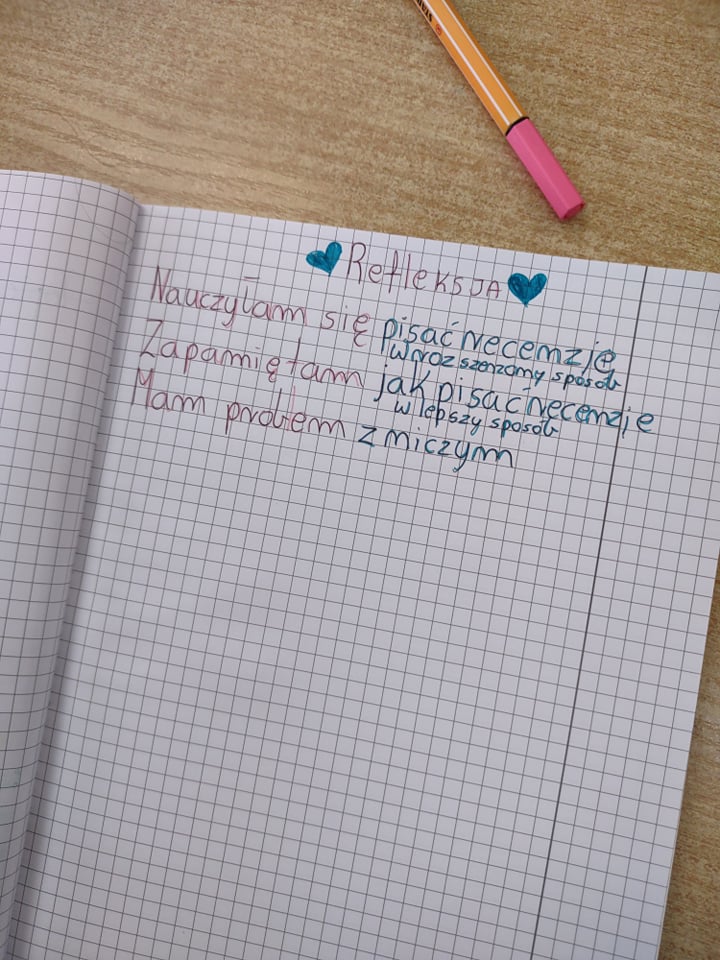 Refleksja
Nauczyłam się pisać recenzję
w rozszerzony sposób
Zapamiętam jak pisać recenzje
w lepszy sposób
Mam problem z niczym